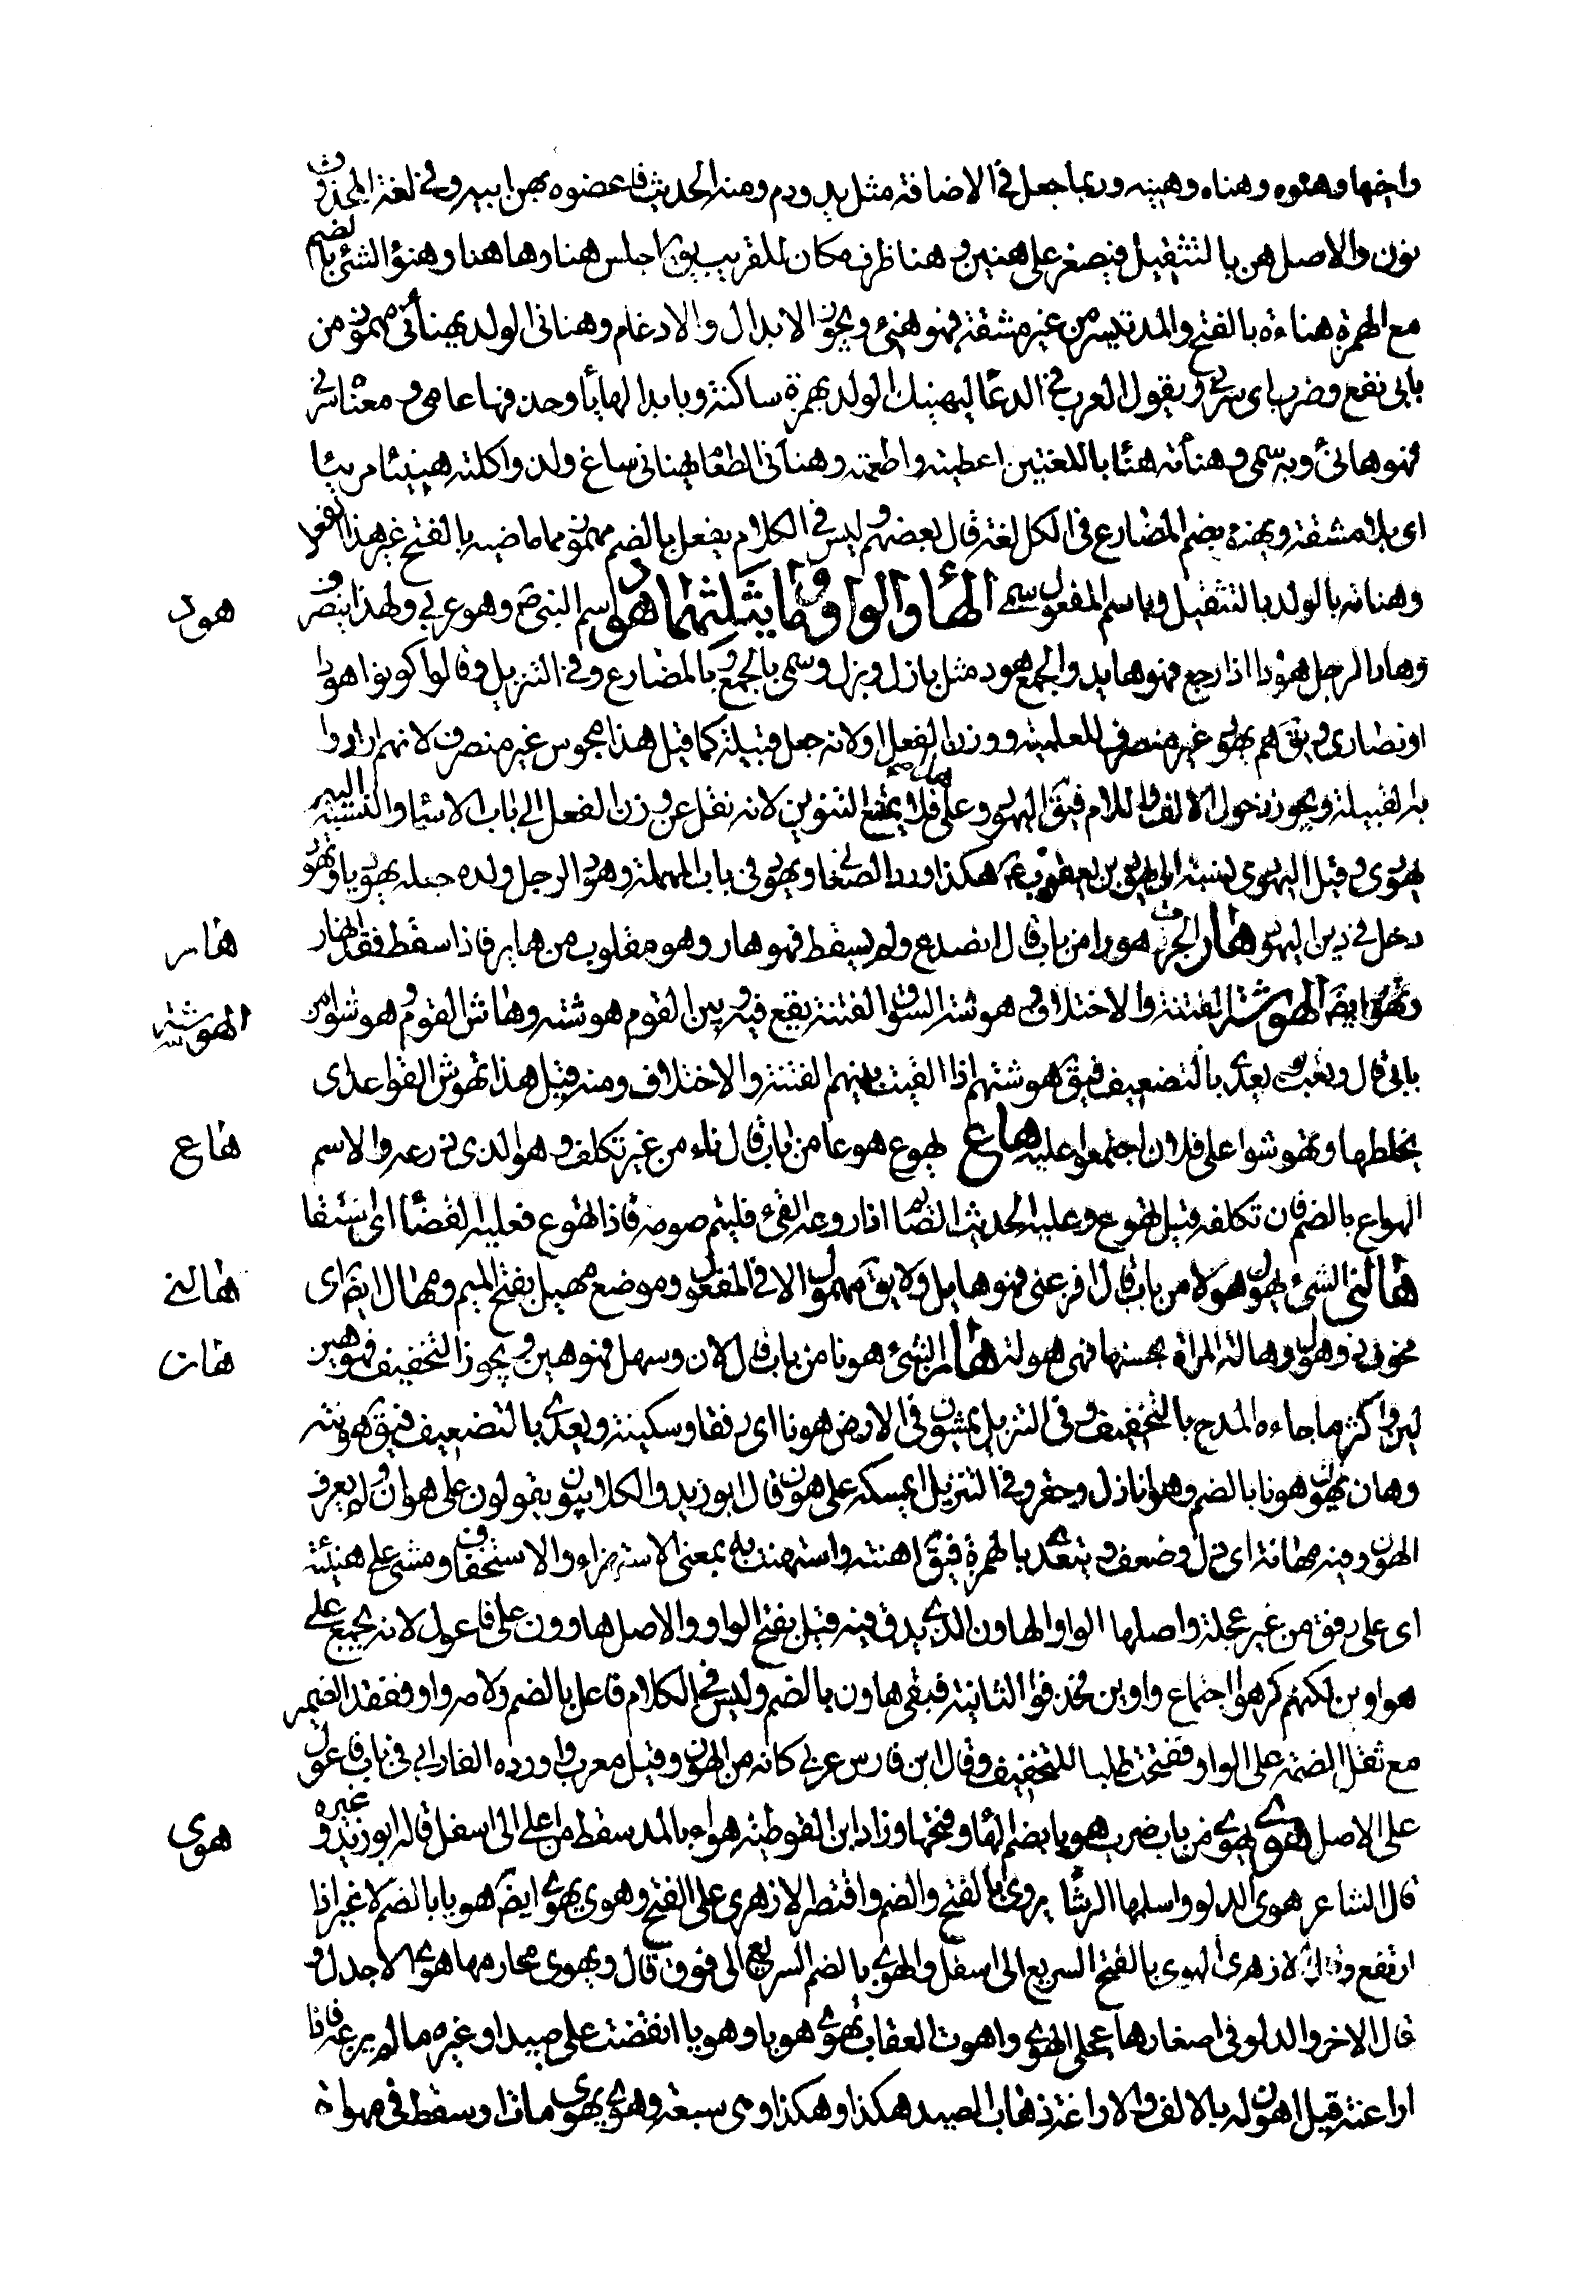 واخيها وهنوه وهناه وهنيه وربما جعل في الاضافة مثل يد ودم ومنه الحديث فاعضوه بهن ابيه وفي لغة المحذوف
نون والاصل هن بالتثقيل فيصغر على هنين و هنا ظرف مكان للقريب يق اجلس هنا وهاهنا وهنؤ الشئ بالضم
مع الهمزة هناءة بالفتح والمد تيسر من غير مشقة فهو هنئ ويجوز الابدال والادغام وهنانى الولد يهنأنى مهموز من
بابى نفع وضرب اى سرنى ويقول العرب في الدعا ليهنئك الولد بهمزة ساكنة وبابدالها يأ وحذفها عامى و معناه سرنى
فهو هانئ وبه سمى و هنأته هنئا باللغتين اعطيته واطعمته وهنأنى الطعام يهنانى ساغ ولذ واكلته هنيئا مريئا
اى بلا مشقة ويهنؤ بضم المضارع فى الكل لغة قال بعضهم وليس في الكلام يفعل بالضم مهموز مما ماضيه بالفتح غير هذا الفعل
وهناته بالولد بالتثقيل وباسم المفعول سمى الهأ والواو وما يثلثهما هود اسم النبى ص وهو عربى ولهذا ينصرف
وهاد الرجل هودا اذا رجع فهو هايد والجمع هود مثل بازل وبزل وسمى بالجمع و بالمضارع وفي التنزيل وقالوا كونوا هودا
او نصارى و يق هم يهود غير منصرف للعلمية ووزن الفعل او لانه جعل قبيلة كما قيل هذا مجوس غير منصرف لانهم ارادوا
به القبيلة ويجوز دخول الالف واللام فيق اليهود وعلى هذا فلا يمتنع التنوين لانه نقل عن وزن الفعل الى باب الاسما والنسبة اليه
يهودى و قيل اليهودى نسبة الى يهود بن يعقوب ع هكذا اورده الصغانى و يهود فى باب المهملة وهود الرجل ولده جعله يهوديا وتهود
دخل في دين اليهود هار الجرف هورا من باب قال انصدع ولم يسقط فهو هار وهو مقلوب من هاير فاذا سقط فقد انهار
وتهور ايض الهوشة الفتنة والاختلاف و هوشة السوق الفتنة يقع فيه و بين القوم هوشة وهاش القوم و هوشوا من
بابى قال وتعب و يعدى بالتضعيف فيق هوشتهم اذا القيت بينهم الفتنة والاختلاف ومنه قيل هذا يهوش القواعد اى
يخلطها وتهوشوا على فلان اجتمعوا عليه هاع يهوع هوعا من باب قال قاء من غير تكلف و هو الذى ذرعه والاسم
الهواع بالضم فان تكلفه قيل تهوع وعليه الحديث الصائم اذا ذرعه القئ فليتم صومه فاذا تهوع فعليه القضأ اى استقا
هالنى الشئ يهول هولا من باب قال افزعنى فهو هايل ولا يق مهول الا فى المفعول وموضع مهيل بفتح الميم ومهال ايض اى
مخوف ذو هول وهالة المراة بحسنها فهى هولة هان الشئ هونا من باب قال لان وسهل فهو هين و يجوز التخفيف فهو هين
لين واكثر ما جاءه المدح بالتخفيف و فى التنزيل يمشون فى الارض هونا اى رفقا وسكينة ويعدى بالتضعيف فيق هونته
وهان يهون هونا بالضم وهوانا ذل وحقر وفى التنزيل ايمسكه على هون قال ابو زيد والكلابيون يقولون على هوان ولم يعرفوا
الهون وفيه مهانة اى ذل وضعف و يتعدى بالهمزة فيق اهنته واستهنت به بمعنى الاستهزاء والاستخفاف ومشى على هينته
اى على رفق من غير عجلة واصلها الواو الهاون الذى يدق فيه قيل بفتح الواو والاصل هاوون على فاعول لانه يجمع على
هواوين لكنهم كرهوا اجتماع واوين فحذفوا الثانية فبقى هاون بالضم وليس فى الكلام فاعل بالضم ولامه واو ففقد النظير
مع ثقل الضمة على الواو ففتحت طلبا للتخفيف وقال ابن فارس عربى كانه من الهون و قيل معرب واورده الفارابى فى باب فاعول
على الاصل هوى يهوى من باب ضرب هويا بضم الهأ وفتحها وزاد ابن القوطية هواء بالمد سقط من اعلى الى اسفل قاله ابو زيد وغيره
قال الشاعر هوى الدلو واسلمها الرشا يروى بالفتح والضم واقتصر الازهرى على الفتح وهوى يهوى ايض هويا بالضم لا غير اذا
ارتفع وقال الازهرى الهوى بالفتح السريع الى اسفل والهوى بالضم السريع الى فوق قال ويهوى مخارمها هوى الاجدل و
قال الاخر والدلو فى اصعادها عجلى الهوى واهوت العقاب تهوى هويا وهويا انقضت على صيد او غيره ما لم يرغه فاذا
اراغته قيل اهوت له بالالف والاراغة ذهاب الصيد هكذا وهكذا وهى تتبعه وهوى يهوى مات او سقط فى مهواة
هود
هار
الهوشة
هاع
هالنى
هان
هوى